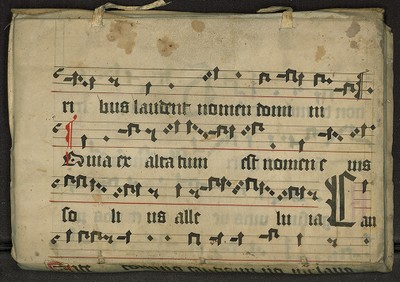 ri bus laudent nomen domi ni
Quia ex alta tum est nomen e ius
so li us alle lu ia Can